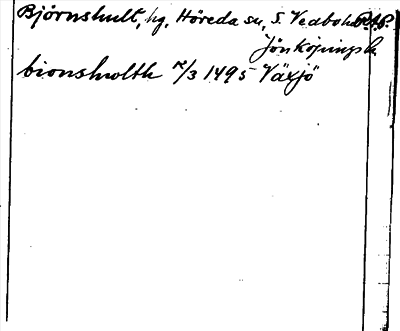 Björnshult, hg. Höreda sn, S. Vedbo hd
Jönköpings l.
bionshwlth 12/3 1495 Växjö